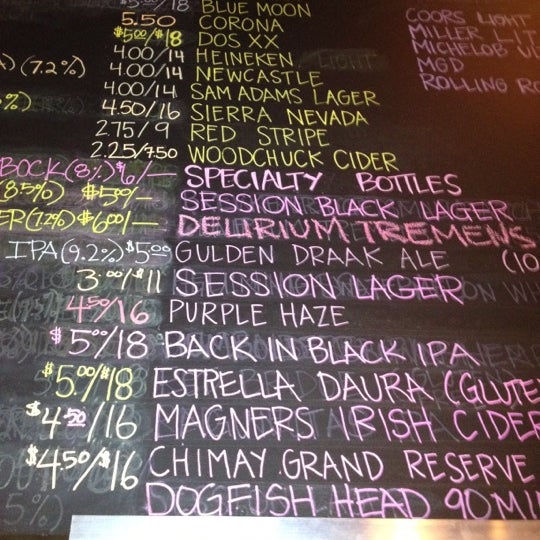 $5.00/$18 BLUE MOON
5.50 CORONA COORS LIGHT
$5.00/$18 DOS XX MILLER LIT
(7.2%) 4.00/14 HEINEKEN MICHELOB
4.00/14 NEWCASTLE MGD
4.00/14 SAM ADAMS LAGER ROLLING RO
4.50/16 SIERRA NEVADA
2.75/9 RED STRIPE
2.25/7.50 WOODCHUCK CIDER
BOCK (8%) $6/— SPECIALTY BOTTLES
(8.5%) $5.00/— SESSION BLACK LAGER
ER (7.2%) $6.00/— DELIRIUM TREMENS
IPA (9.2%) $5.00 GULDEN DRAAK ALE (10
3.00/$11 SESSION LAGER
4.50/16 PURPLE HAZE
$5.00/18 BACK IN BLACK IPA
$5.00/$18 ESTRELLA DAURA (GLUTE
$4.50/16 MAGNERS IRISH CIDER
$4.50/$16 CHIMAY GRAND RESERVE
DOGFISH HEAD 90 MIN